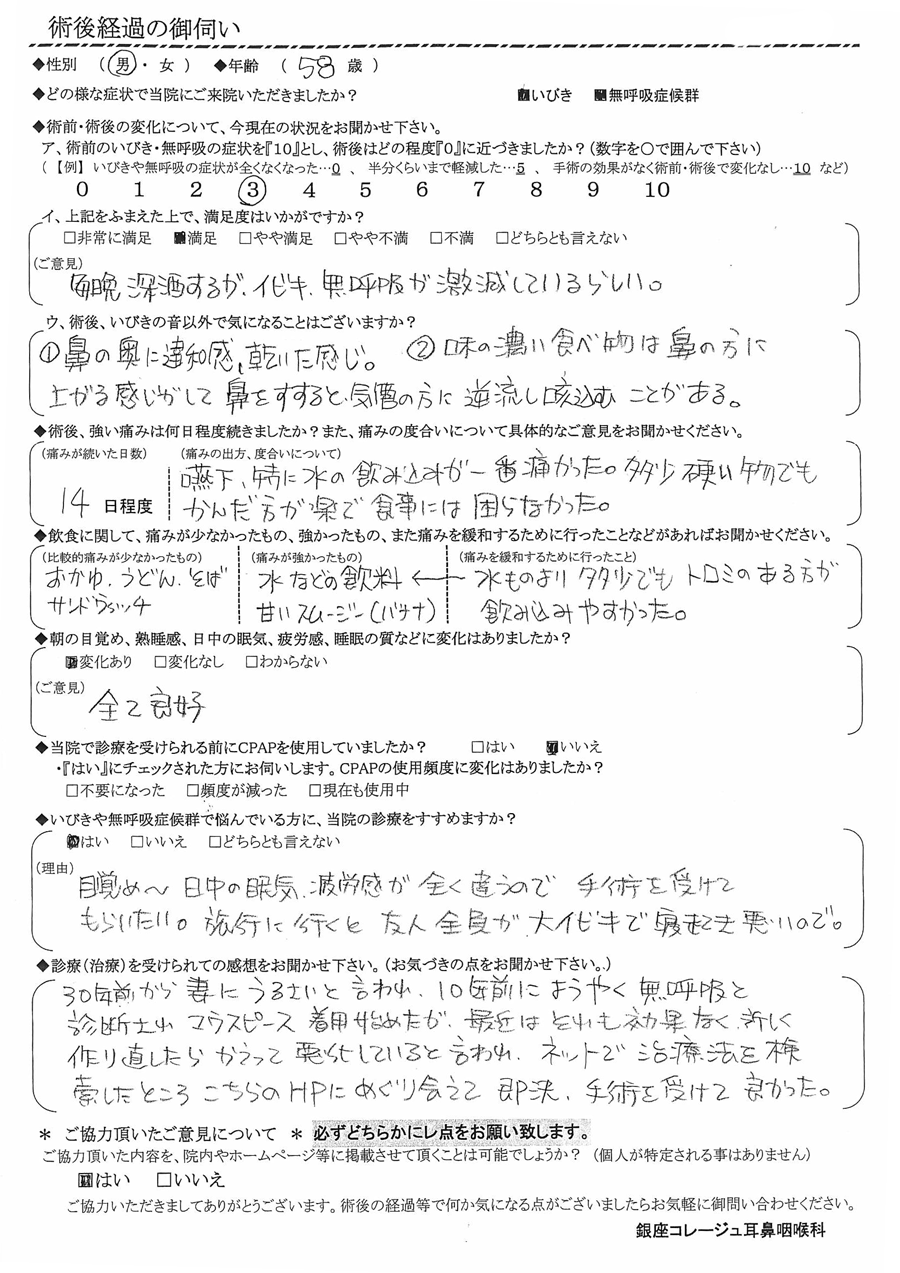 術後経過の御伺い
◆性別 ( 男・ 女 ) ◆年齢 ( 58 歳 )
◆どの様な症状で当院にご来院いただきましたか? ☑いびき ☑無呼吸症候群
◆術前・術後の変化について、今現在の状況をお聞かせ下さい。
ア、術前のいびき・無呼吸の症状を『10』とし、術後はどの程度『0』に近づきましたか?(数字を○で囲んで下さい)
(【例】いびきや無呼吸の症状が全くなくなった…0 、 半分くらいまで軽減した…5 、 手術の効果がなく術前・術後で変化なし…10 など)
0 1 2 3 4 5 6 7 8 9 10
イ、上記をふまえた上で、満足度はいかがですか?
□非常に満足 ☑満足 □やや満足 □やや不満 □不満 □どちらとも言えない
(ご意見)
毎晩深酒するが、イビキ、無呼吸が激減しているらしい。
ウ、術後、いびきの音以外で気になることはございますか?
①鼻の奥に違和感、乾いた感じ。 ②味の濃い食べ物は鼻の方に
上がる感じがして鼻をすすると、気管の方に逆流し咳込むことがある。
◆術後、強い痛みは何日程度続きましたか?また、痛みの度合いについて具体的なご意見をお聞かせください。
(痛みが続いた日数) (痛みの出方、度合いについて)
嚥下、特に水の飲み込みが一番痛かった。多少硬い物でも
14 日程度 かんだ方が楽で食事には困らなかった。
◆飲食に関して、痛みが少なかったもの、強かったもの、また痛みを緩和するために行ったことなどがあればお聞かせください。
(比較的痛みが少なかったもの) (痛みが強かったもの) (痛みを緩和するために行ったこと)
おかゆ、うどん、そば 水などの飲料 ← 水ものより多少でもトロミのある方が
サンドウィッチ 甘いスムージー(バナナ) 飲み込みやすかった。
◆朝の目覚め、熟睡感、日中の眠気、疲労感、睡眠の質などに変化はありましたか?
☑変化あり □変化なし □わからない
(ご意見)
全て良好
◆当院で診療を受けられる前にCPAPを使用していましたか? □はい ☑いいえ
・『はい』にチェックされた方にお伺いします。CPAPの使用頻度に変化はありましたか?
□不要になった □頻度が減った □現在も使用中
◆いびきや無呼吸症候群で悩んでいる方に、当院の診療をすすめますか?
☑はい □いいえ □どちらとも言えない
(理由)
目覚め〜日中の眠気、疲労感が全く違うので手術を受けて
もらいたい。旅行に行くと友人全員が大イビキで寝起き悪いので。
◆診療(治療)を受けられての感想をお聞かせ下さい。(お気づきの点をお聞かせ下さい。)
30年前から妻にうるさいと言われ、10年前にようやく無呼吸と
診断されマウスピース着用始めたが、最近はそれも効果なく、新しく
作り直したらかえって悪化していると言われ、ネットで治療法を検
索したところこちらのHPにめぐり会えて即決、手術を受けて良かった。
＊ ご協力頂いたご意見について ＊ 必ずどちらかにレ点をお願い致します。
ご協力頂いた内容を、院内やホームページ等に掲載させて頂くことは可能でしょうか? (個人が特定される事はありません)
☑はい □いいえ
ご協力いただきましてありがとうございます。術後の経過等で何か気になる点がございましたらお気軽に御問い合わせください。
銀座コレージュ耳鼻咽喉科